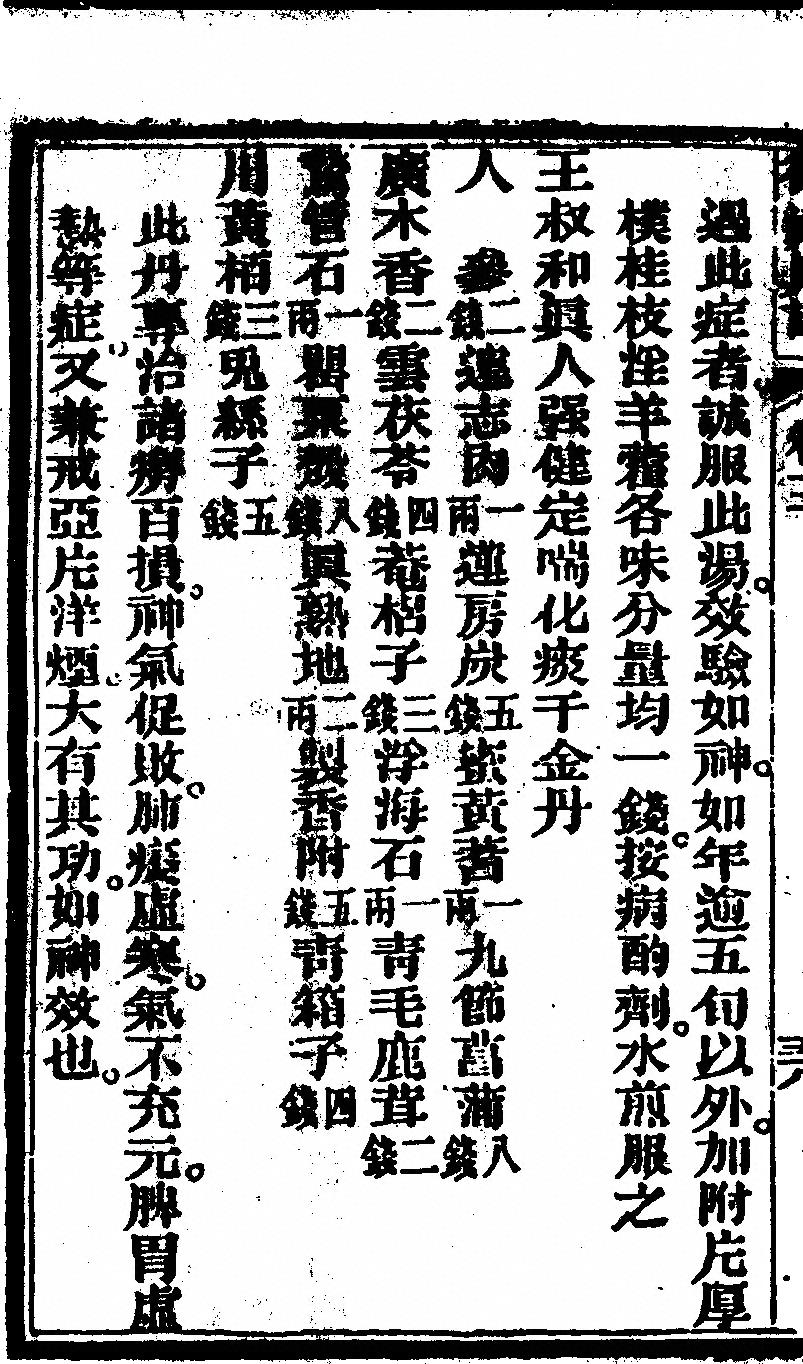 遇此症者誠服此湯。效驗如神。如年逾五旬以外。加附片厚
樸桂枝淫羊藿各味分量均一錢。按病酌劑。水煎服之
王叔和眞人强健定喘化痰千金丹
人參二錢 遠志肉一兩 蓮房炭五錢 蜜黃蓍一兩 九節菖蒲八錢
廣木香二錢 雲茯苓四錢 菴梠子三錢 浮海石一兩 靑毛鹿茸二錢
鵞管石一兩 罌粟殼八錢 眞熟地二兩 製香附五錢 靑箱子四錢
川黃栢三錢 兎絲子五錢
此丹專治諸癆百損。神氣促敗。肺痿虛寒。氣不充元。脾胃虛
熱等症。又兼戒亞片洋煙。大有其功。如神效也。